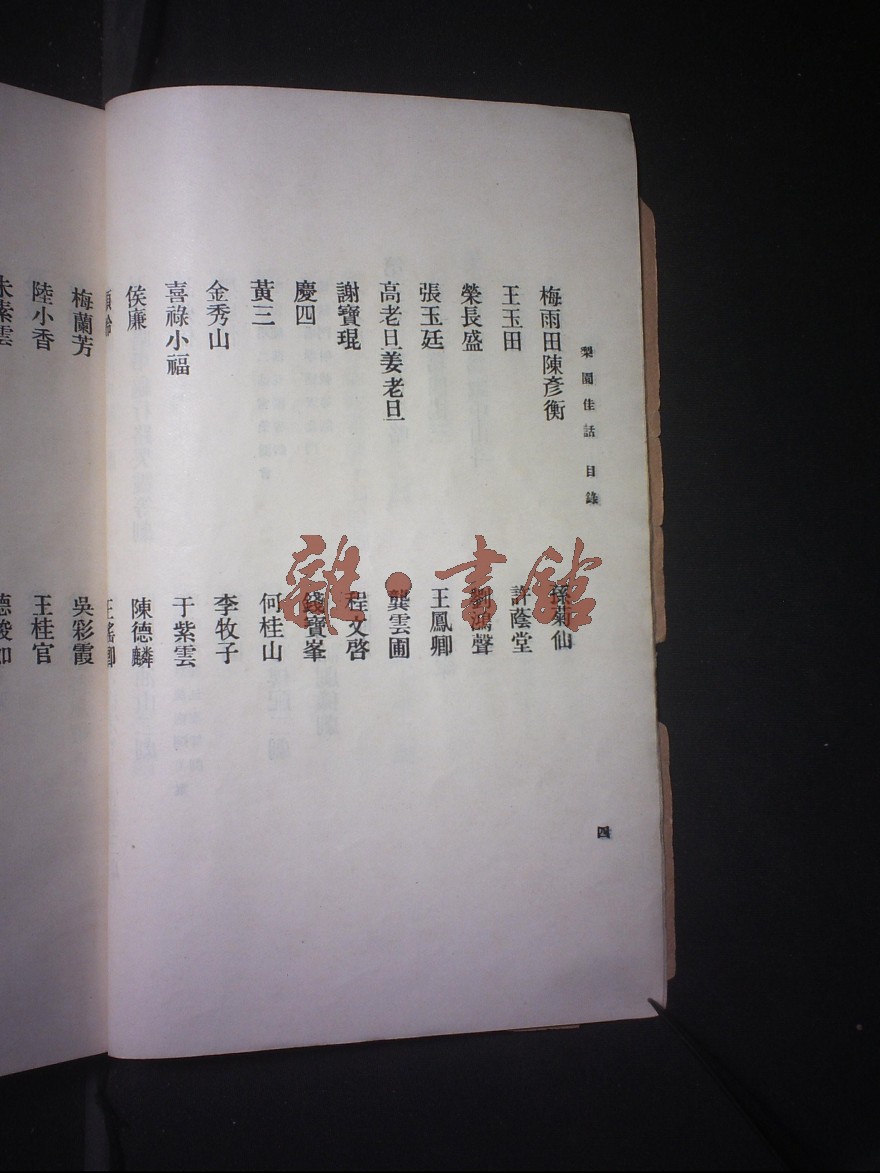 梨園佳話 目錄
四
梅雨田陳彥衡 孫菊仙
王玉田 許蔭堂
榮長盛 劉鴻聲
張玉廷 王鳳卿
高老旦姜老旦 龔雲圃
謝寶琨 程文啓
慶四 錢寶峯
黃三 何桂山
金秀山 李牧子
喜祿小福 于紫雲
侯廉 陳德麟
王瑤卿
梅蘭芳 吳彩霞
陸小香 王桂官
朱素雲 德珺如
雜·書館